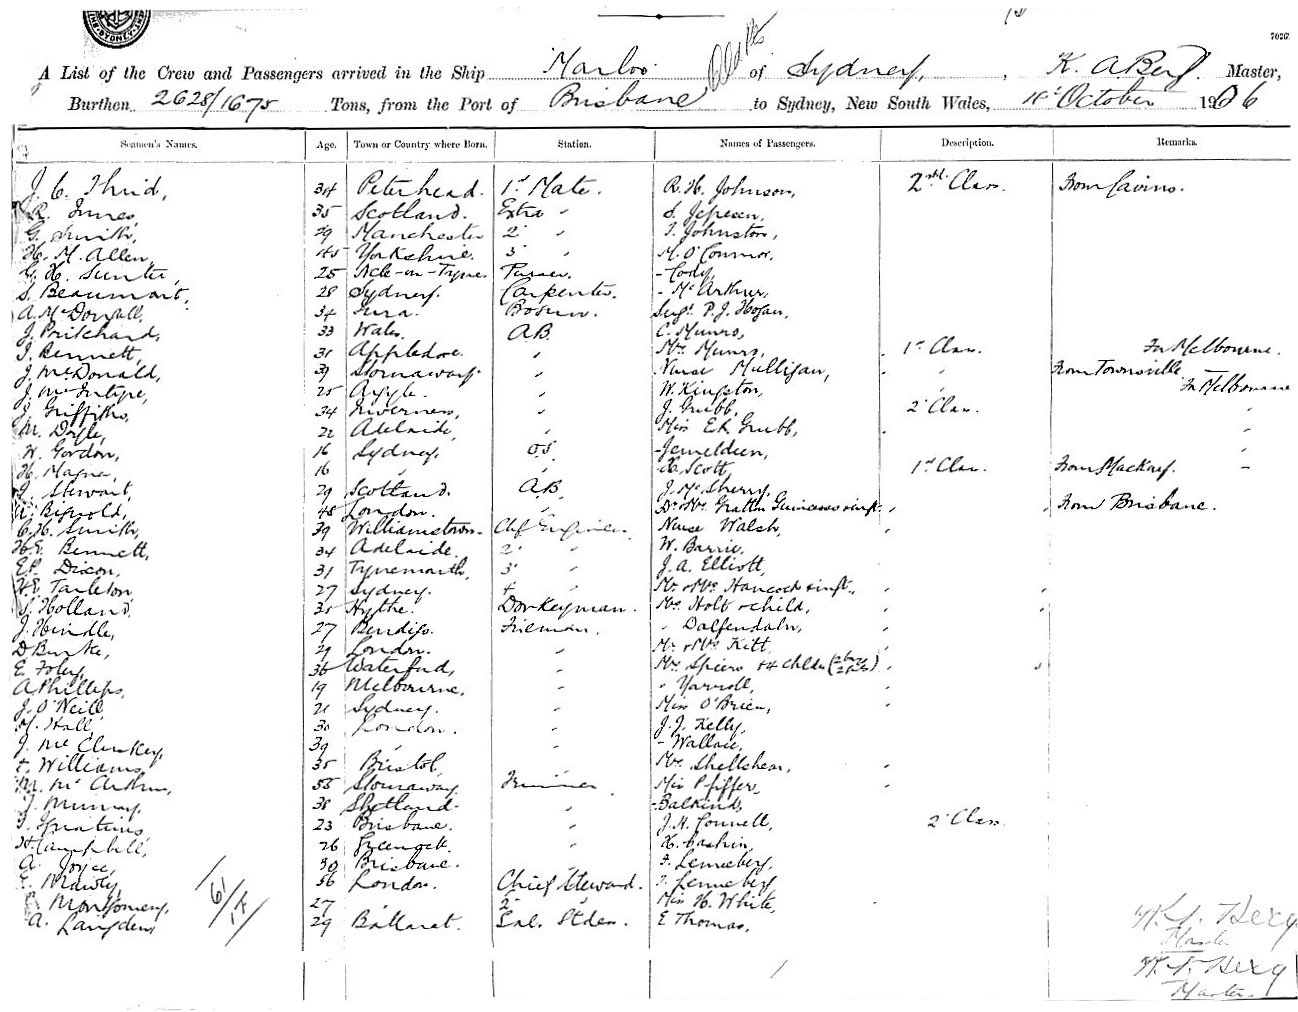 7026.
A List of the Crew and Passengers arrived in the Ship Marloo of Sydney, K. A Berg. Master,
Burthen 2628/1675 Tons, from the Port of Brisbane to Sydney, New South Wales, October 1906
Seamen's Names. Age. Town or Country where Born. Station. Names of Passengers. Description. Remarks.
34 Peterhead. 1st Mate. R. H. Johnson, 2nd Class. From Cairns.
R. Innes, 35 Scotland. Extra " S. Jepson,
G. Smith, 29 Manchester 2" " J. Johnston,
H. M. Allen, 45 Yorkshire. 3" " M. O'Connor,
G. H. Sunter, 25 Purser. - Cody,
S. Beaumont, 28 Sydney. Carpenter. - McArthur,
A. McDougall, 34 Bosun. Sergt. P. J. Hogan,
J. Pritchard, 33 Wales. AB. C. Munro,
J. Bennett, 31 Appledore. " Mrs Munro, 1st Class. For Melbourne.
J. McDonald, 39 Stornaway. " Nurse Mulligan, " From Townsville
J. McIntyre, 25 Argyle. " W. Kingston, " For Melbourne
J. Griffiths, 34 Inverness, " J. Grubb, 2" Class. "
M. Doyle, 22 Adelaide, " Miss E. K. Grubb, "
W. Gordon, 16 Sydney. O.S. "
H. Magner, 16 " " H. Scott, 1st Class. From Mackay. -
J. Stewart, 29 Scotland. AB. J. McSherry,
48 London. " Dr & Mrs Grattan Guinness & inft. " From Brisbane.
C. H. Smith, 39 Williamstown. Chf Engineer. Nurse Walsh, "
H. E. Bennett, 34 Adelaide. 2" " W. Barrie,
E. P. Dixon, 31 Tynemouth, 3" " J. A. Elliott,
H. E. Tarleton, 27 Sydney. 4 " Mr & Mrs Hancock & inft., " "
S. Holland, 31 Hythe. Donkeyman. Mrs Holt & child, " "
J. Hindle, 27 Bendigo. Fireman. "
D Burke, 29 London. " Mr & Mrs Kitt,
E. Foley, 36 Waterford, " Mrs Spiers & 4 Chldn " "
A Phillips, 19 Melbourne, " " Yarroll, "
J. O'Neill, 21 Sydney. " Miss O'Brien, "
H. Hall, 30 London. " J. J. Kelly,
J. McCluskey, 39 " " - Wallace,
Williams, 35 Bristol, " Mrs Shellshear, "
M. McArthur, 55 Stornaway Trimmer Miss Pfiffer, "
J. Murray, 38 Shetland " - Balkind,
J. Ignatius, 23 Brisbane. " J. H. Connell, 2" Class.
H Campbell, 26 Greenock. "
A. Joyce, 30 Brisbane. " F. Lenneberg,
Mawby, 56 London. Chief Steward. J. Lenneberg
Montgomery, 27 " 2" " Miss H. White, "
A. Langdon, 29 Ballarat. Sal. Stdess. E Thomas,
61/17
Berg
Master
Berg
Master.